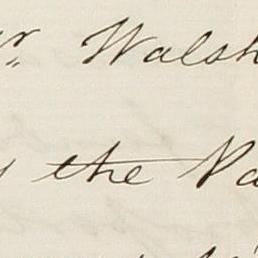 r. Walsh
the Va